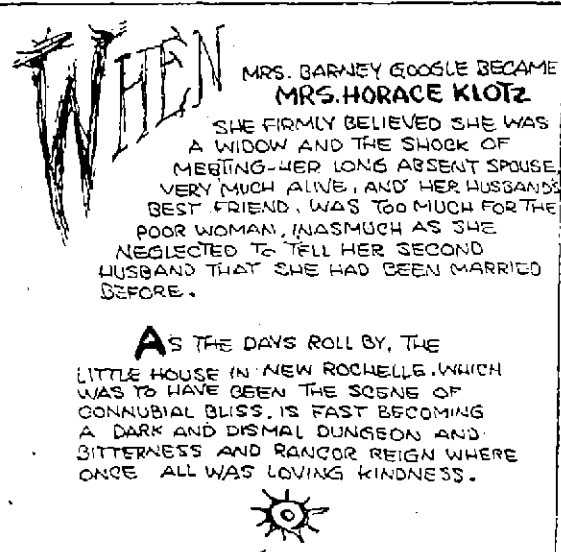 WHEN MRS. BARNEY GOOGLE BECAME
MRS. HORACE KLOTZ
SHE FIRMLY BELIEVED SHE WAS
A WIDOW AND THE SHOCK OF
MEETING-HER LONG ABSENT SPOUSE,
VERY MUCH ALIVE, AND HER HUSBAND'S
BEST FRIEND, WAS TOO MUCH FOR THE
POOR WOMAN, INASMUCH AS SHE
NEGLECTED TO TELL HER SECOND
HUSBAND THAT SHE HAD BEEN MARRIED
BEFORE.
AS THE DAYS ROLL BY, THE
LITTLE HOUSE IN NEW ROCHELLE, WHICH
WAS TO HAVE BEEN THE SCENE OF
CONNUBIAL BLISS, IS FAST BECOMING
A DARK AND DISMAL DUNGEON AND
BITTERNESS AND RANCOR REIGN WHERE
ONCE ALL WAS LOVING KINDNESS.